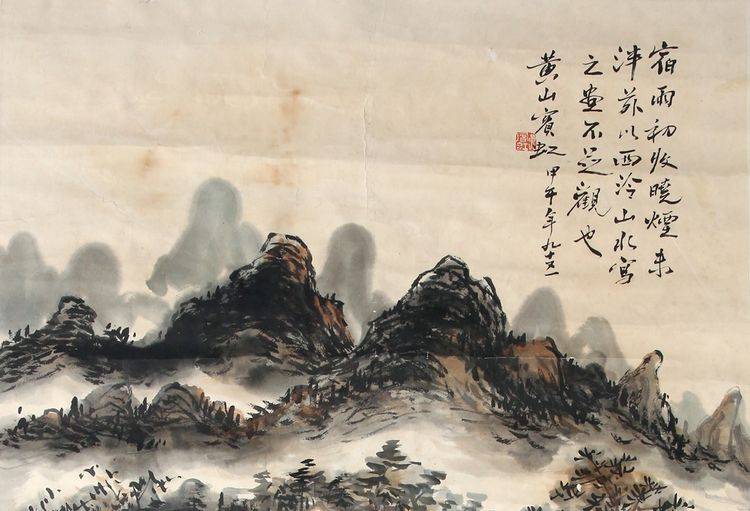 宿雨初收曉煙未
泮茲以西泠山水寫
之畫不足觀也
黃山賓虹甲午年九十又一